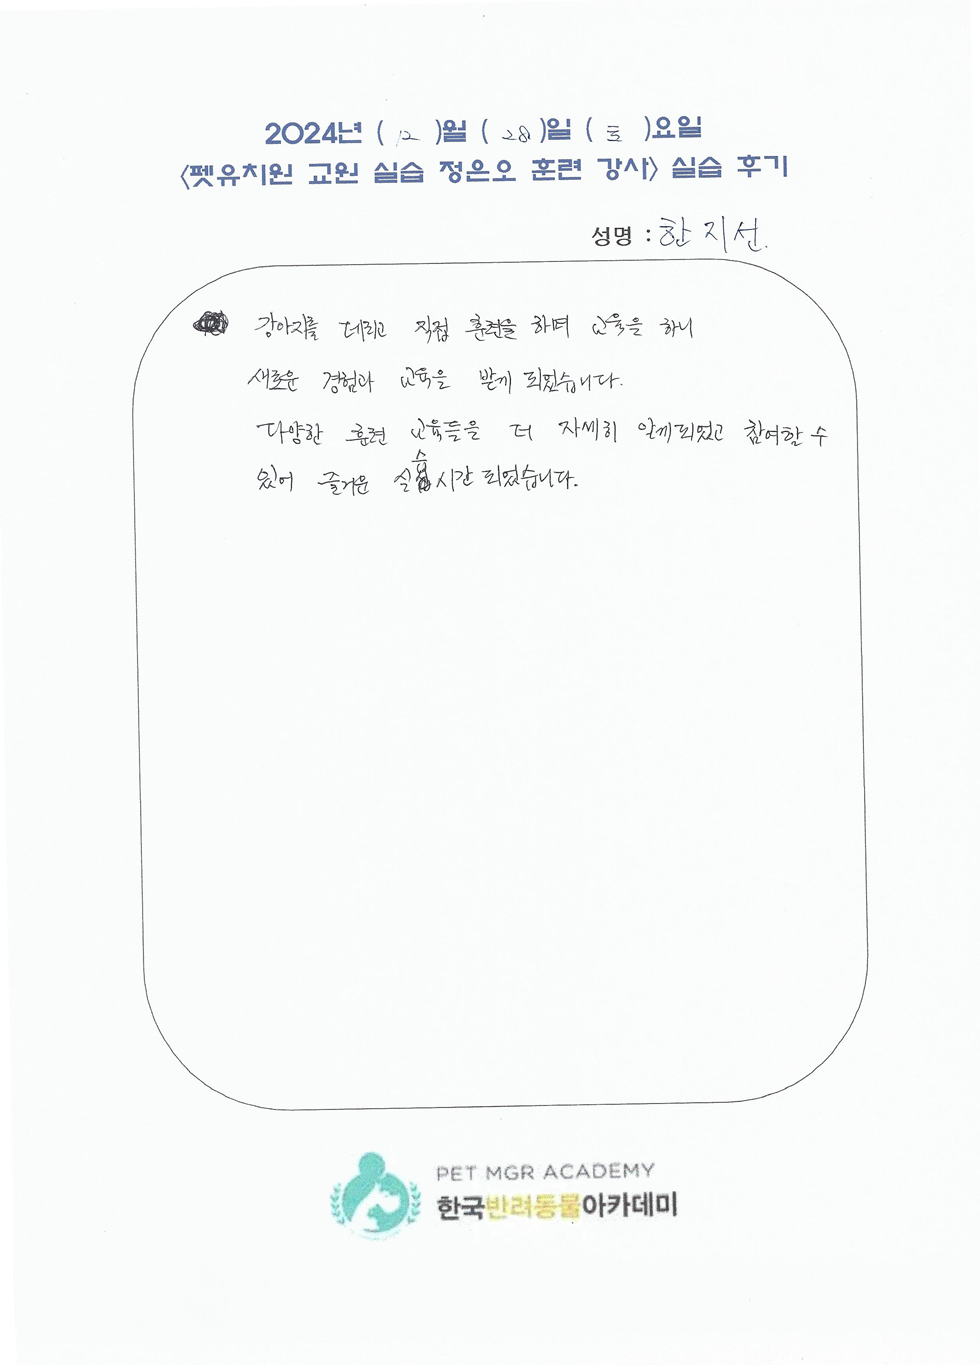 2024년 ( 12 )월 ( 28 )일 ( 토 )요일
<펫유치원 교원 실습 정은오 훈련 강사> 실습 후기
성명 : 한지선.
강아지를 데리고 직접 훈련을 하며 교육을 하니
새로운 경험과 교육을 받게 되었습니다.
다양한 훈련 교육들을 더 자세히 알게되었고 참여할 수
있어 즐거운 실습시간 되었습니다.
PET MGR ACADEMY
한국반려동물아카데미